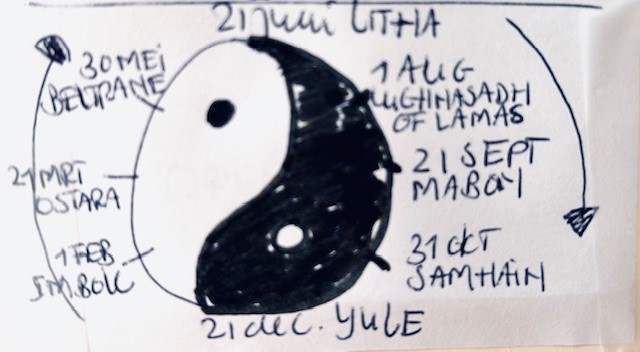 21 juni LITHA
30 MEI
BELTRANE
1 AUG
LUGHNASADH
OF LAMAS
21 MRT
OSTARA
21 SEPT
MABON
1 FEB
IMBOLC
31 OKT
SAMHAIN
21 dec. YULE